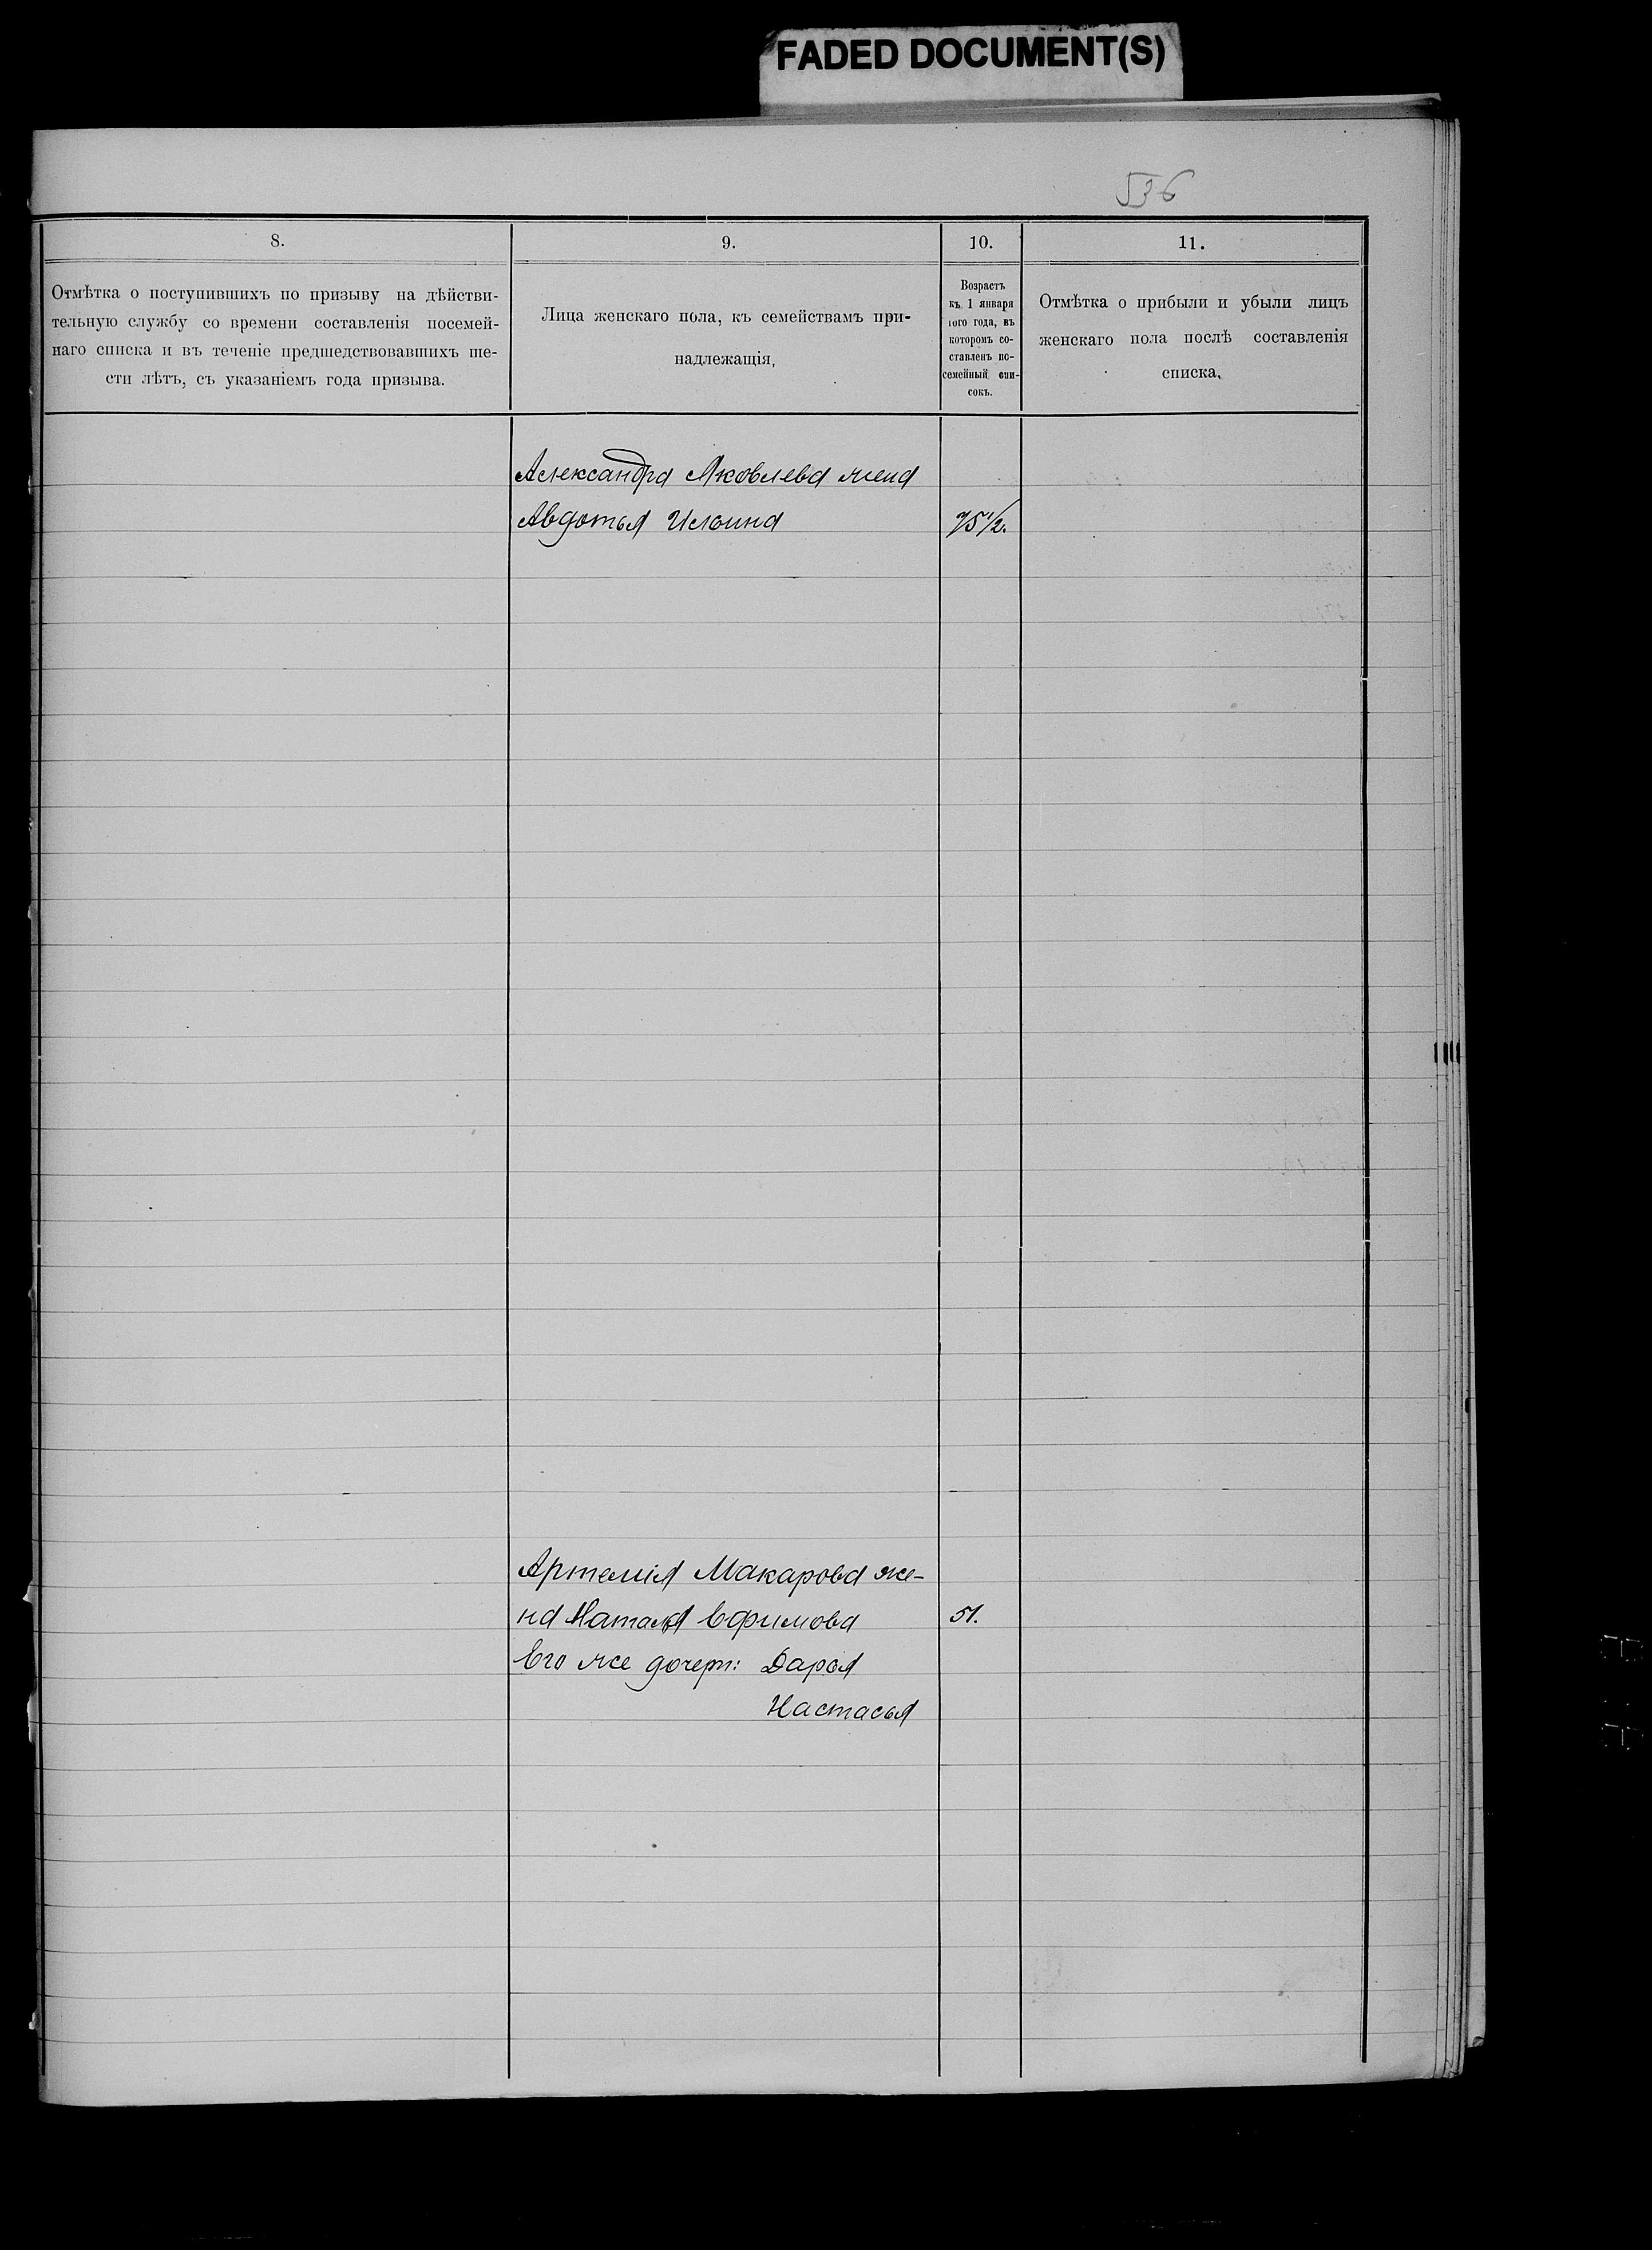 FADED DOCUMENT(S)
536
8.
9.
10.
11.
Отмѣтка о поступившихъ по призыву на дѣйстви-
тельную службу со времени составленія посемей-
наго списка и въ теченіе предшедствовавшихъ ше-
сти лѣтъ, съ указаніемъ года призыва.
Лица женскаго пола, къ семействамъ при-
надлежащія,
Возрастъ
къ 1 января
того года, въ
которомъ со-
ставленъ по-
семейный спи-
сокъ.
Отмѣтка о прибыли и убыли лицъ
женскаго пола послѣ составленія
списка.
Александра Яковлева жена
Авдотья Ильина 75 1/2.
Артемія Макарова же-
на Наталья Ефимова 51.
Его же дочери: Дарья
Настасья